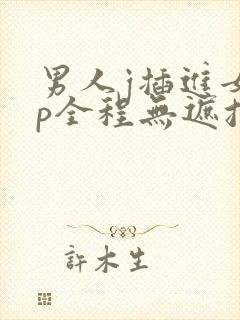 男人j插進女
p全程無遮扌
許木生